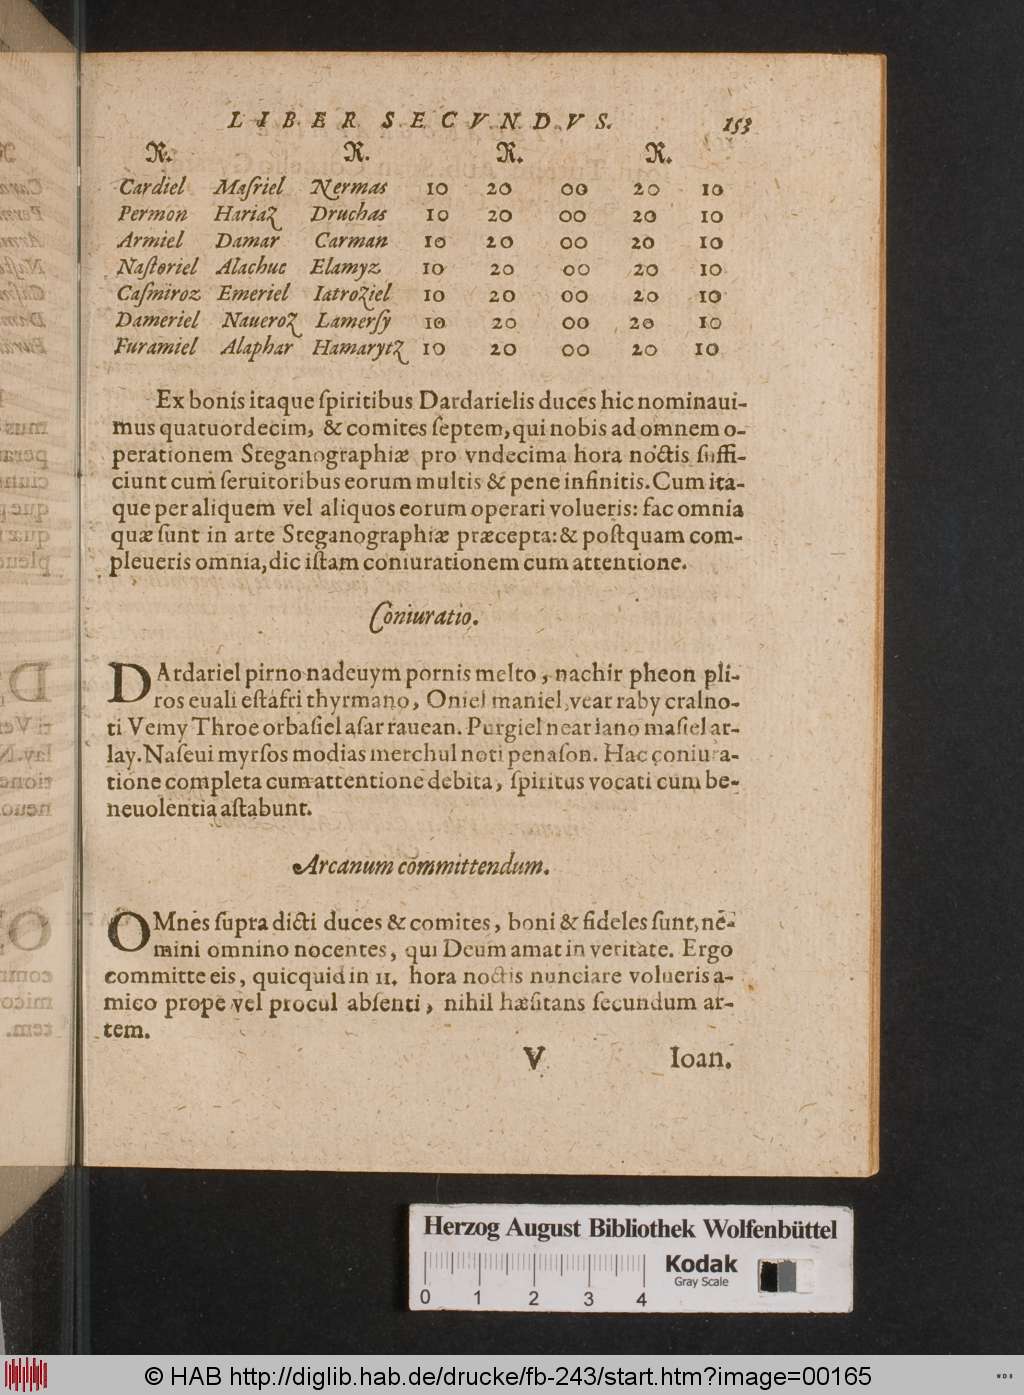 LIBER SECVNDVS. 153
R. R. R. R.
Cardiel Maſriel Nermas 10 20 00 20 10
Permon Hariaz Druchas 10 20 00 20 10
Armiel Damar Carman 10 20 00 20 10
Naſtoriel Alachuc Elamyz 10 20 00 20 10
Caſmiroz Emeriel Iatroziel 10 20 00 20 10
Dameriel Naueroz Lamerſy 10 20 00 20 10
Furamiel Alaphar Hamarytz 10 20 00 20 10
Ex bonis itaque ſpiritibus Dardarielis duces hic nominaui-
mus quatuordecim, & comites ſeptem, qui nobis ad omnem o-
perationem Steganographiæ pro vndecima hora noctis ſuffi-
ciunt cum ſeruitoribus eorum multis & pene infinitis. Cum ita-
que per aliquem vel aliquos eorum operari volueris: fac omnia
quæ ſunt in arte Steganographiæ præcepta: & poſtquam com-
pleueris omnia, dic iſtam coniurationem cum attentione.
Coniuratio.
DArdariel pirno nadeuym pornis melto, nachir pheon pli-
ros euali eſtafri thyrmano, Oniel maniel, vear raby cralno-
ti Vemy Throe orbaſiel aſar rauean. Purgiel near iano maſiel ar-
lay. Naſeui myrſos modias merchul noti penaſon. Hac coniura-
tione completa cum attentione debita, ſpiritus vocati cum be-
neuolentia aſtabunt.
Arcanum committendum.
OMnes ſupra dicti duces & comites, boni & fideles ſunt, nē-
mini omnino nocentes, qui Deum amat in veritate. Ergo
committe eis, quicquid in 11. hora noctis nunciare volueris a-
mico prope vel procul abſenti, nihil hæſitans ſecundum ar-
tem.
V Ioan.
Herzog August Bibliothek Wolfenbüttel
Kodak
Gray Scale
0 1 2 3 4
© HAB http://diglib.hab.de/drucke/fb-243/start.htm?image=00165